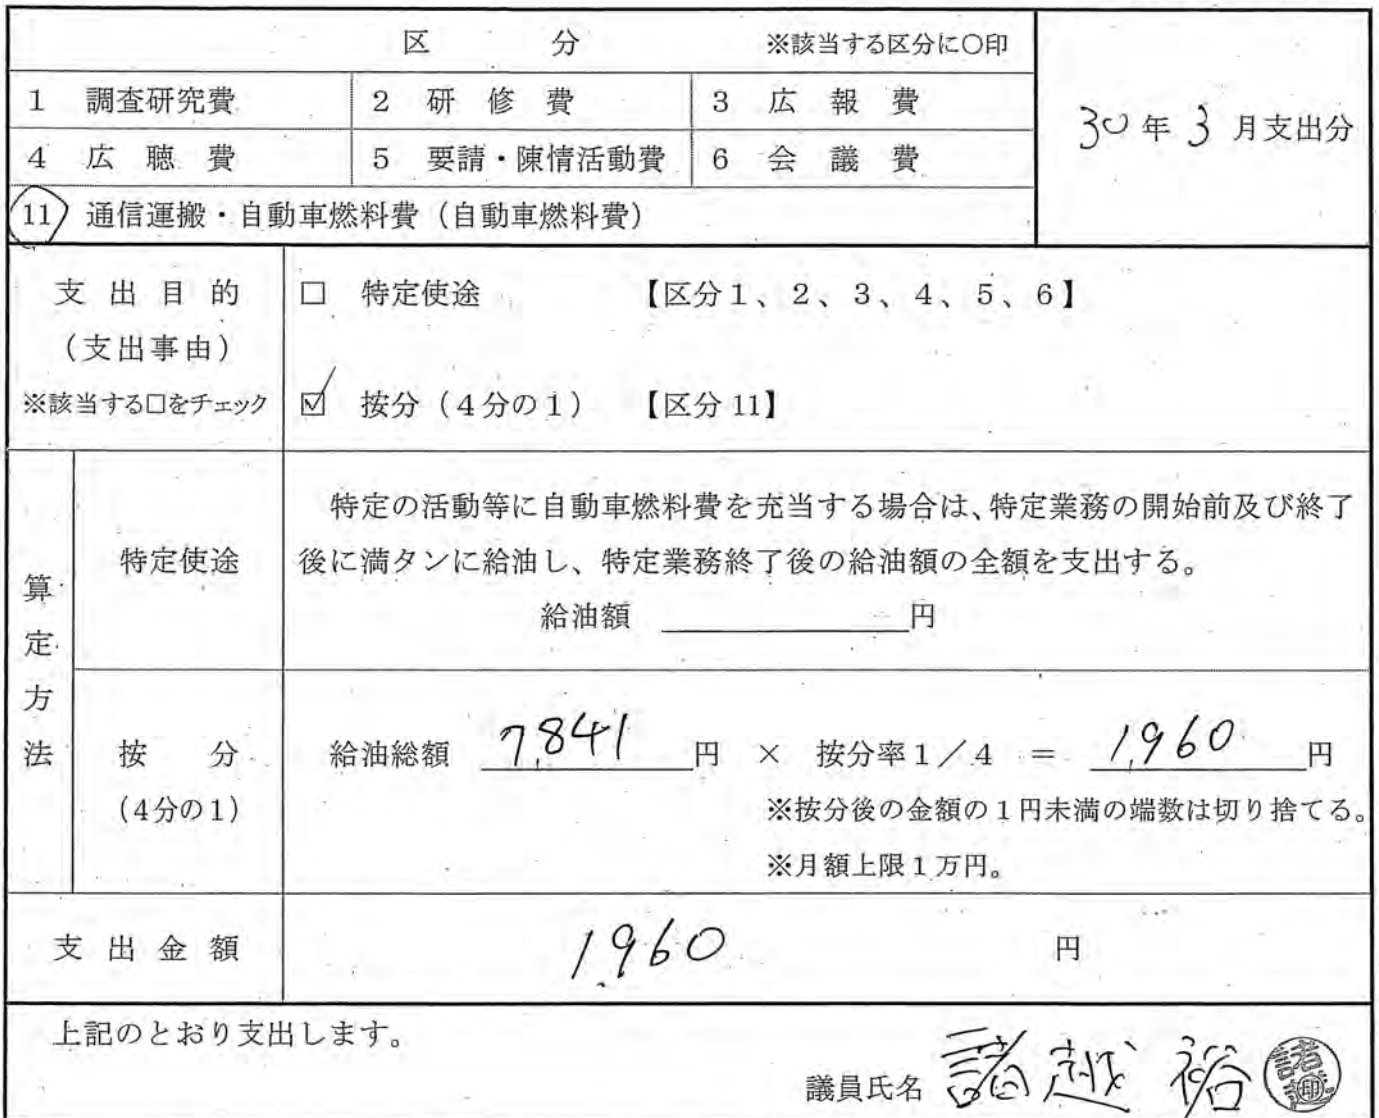 区 分 ※該当する区分に○印
1 調査研究費 2 研修費 3 広報費
30年 3月支出分
4 広聴費 5 要請・陳情活動費 6 会議費
11 通信運搬・自動車燃料費（自動車燃料費）
支出目的 □ 特定使途 【区分1、2、3、4、5、6】
（支出事由）
※該当する□をチェック ☑ 按分（4分の1） 【区分11】
算定方法
特定使途
特定の活動等に自動車燃料費を充当する場合は、特定業務の開始前及び終了
後に満タンに給油し、特定業務終了後の給油額の全額を支出する。
給油額 円
按分 給油総額 7,841 円 × 按分率1／4 = 1,960 円
（4分の1） ※按分後の金額の1円未満の端数は切り捨てる。
※月額上限1万円。
支出金額 1,960 円
上記のとおり支出します。
議員氏名 諸越 裕